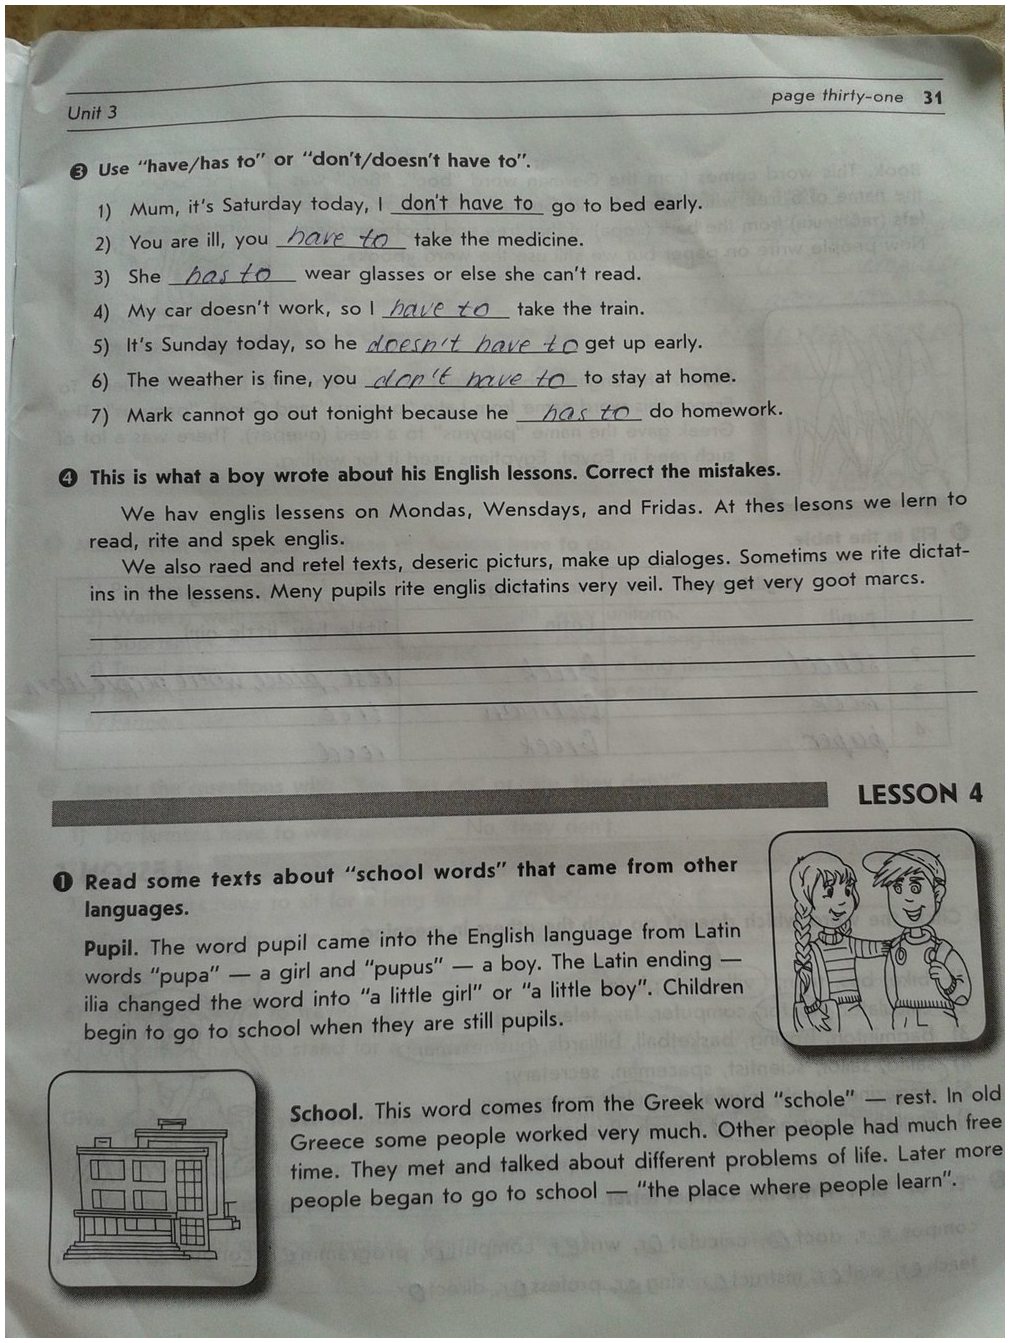 Unit 3
page thirty-one 31
3 Use "have/has to" or "don't/doesn't have to".
1) Mum, it's Saturday today, I don't have to go to bed early.
2) You are ill, you have to take the medicine.
3) She has to wear glasses or else she can't read.
4) My car doesn't work, so I have to take the train.
5) It's Sunday today, so he doesn't have to get up early.
6) The weather is fine, you don't have to to stay at home.
7) Mark cannot go out tonight because he has to do homework.
4 This is what a boy wrote about his English lessons. Correct the mistakes.
We hav englis lessens on Mondas, Wensdays, and Fridas. At thes lesons we lern to
read, rite and spek englis.
We also raed and retel texts, deseric picturs, make up dialoges. Sometims we rite dictat-
ins in the lessens. Meny pupils rite englis dictatins very veil. They get very goot marcs.
LESSON 4
1 Read some texts about "school words" that came from other
languages.
Pupil. The word pupil came into the English language from Latin
words "pupa" — a girl and "pupus" — a boy. The Latin ending —
ilia changed the word into "a little girl" or "a little boy". Children
begin to go to school when they are still pupils.
School. This word comes from the Greek word "schole" — rest. In old
Greece some people worked very much. Other people had much free
time. They met and talked about different problems of life. Later more
people began to go to school — "the place where people learn".